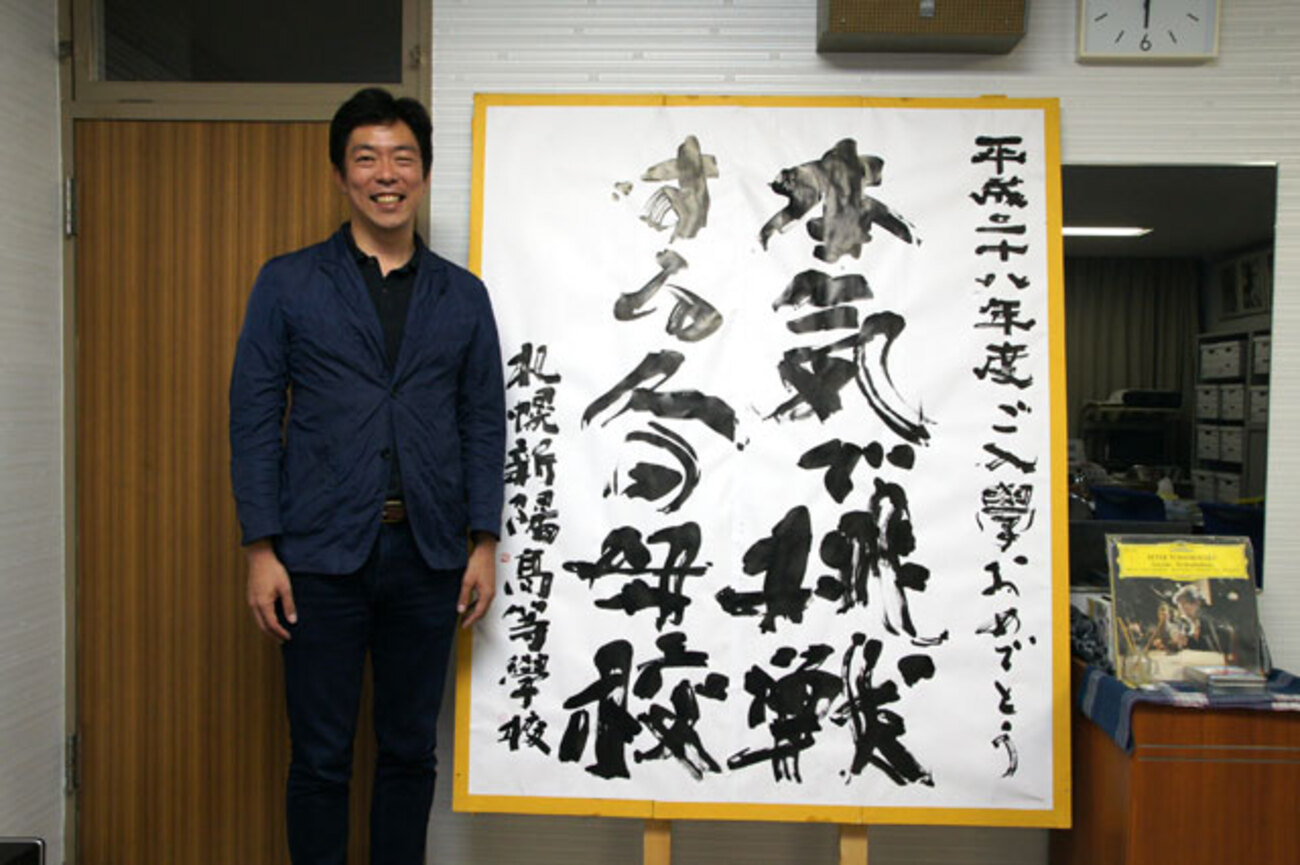 平成二十八年度ご入學おめでとう
本気で挑戦
する人の母校
札幌新陽高等學校
6